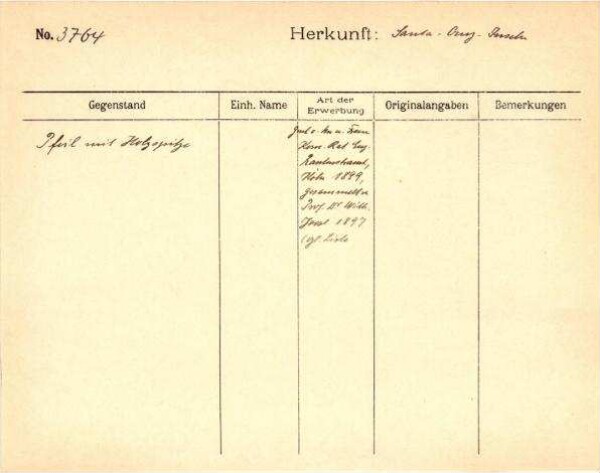 No. 3764
Herkunft: Santa-Cruz-Inseln
Gegenstand
Einh. Name
Art der Erwerbung
Originalangaben
Bemerkungen
Pfeil mit Holzspitze
u. Frau
Kom. Rat Eug.
Rautenstrauch,
Köln 1899,
gesammelt v.
Prof. Dr Wilh.
Joest 1897
(vgl. Liste